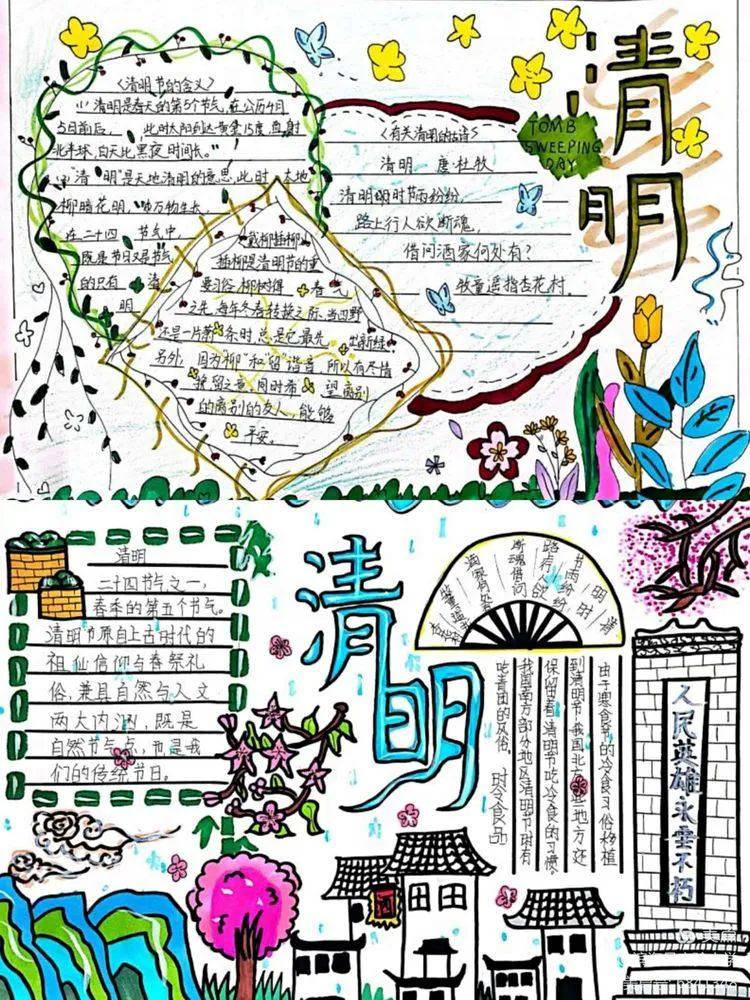 清明
TOMB
SWEEPING
DAY
《清明节的含义》
清明是春天的第5个节气，在公历4月
5日前后， 此时太阳到达黄京15度，直射
北半球，白天比黑夜时间长。"
"清 明"是天地清明的意思，此时，大地
柳暗花明， 万物生长
在二十四 节气中，
既是节日又是节气
的只有 清
明
我柳插柳
插柳是清明节的重
要习俗，柳树得 春 气
之先，每年冬春转换之际，当四野
还是一片萧条时，总是它最先 出新绿。
另外，因为"柳"和"留"谐音，所以有尽情
挽留之意，同时希 望离别
的离别的友人，能够
平安。
《有关清明的古诗》
清明 唐·杜牧
清明时节雨纷纷，
路上行人欲断魂，
借问酒家何处有？
牧童遥指杏花村。
清明
清明
二十四节气之一，
春季的第五个节气。
清明节源自上古时代的
祖仙信仰与春祭礼
俗，兼具自然与人文
两大内涵，既是
自然节气点，也是我
们的传统节日。
清明时
节雨纷纷
路上行人欲
断魂借问
酒家何处
由于寒食节的冷食习俗移植
到清明节，我国北方一些地方还
保留着清明节吃冷食的习惯，
我国南方部分地区清明节时有
吃青团的风俗。 时令食品
酒
人民英雄永垂不朽
美篇